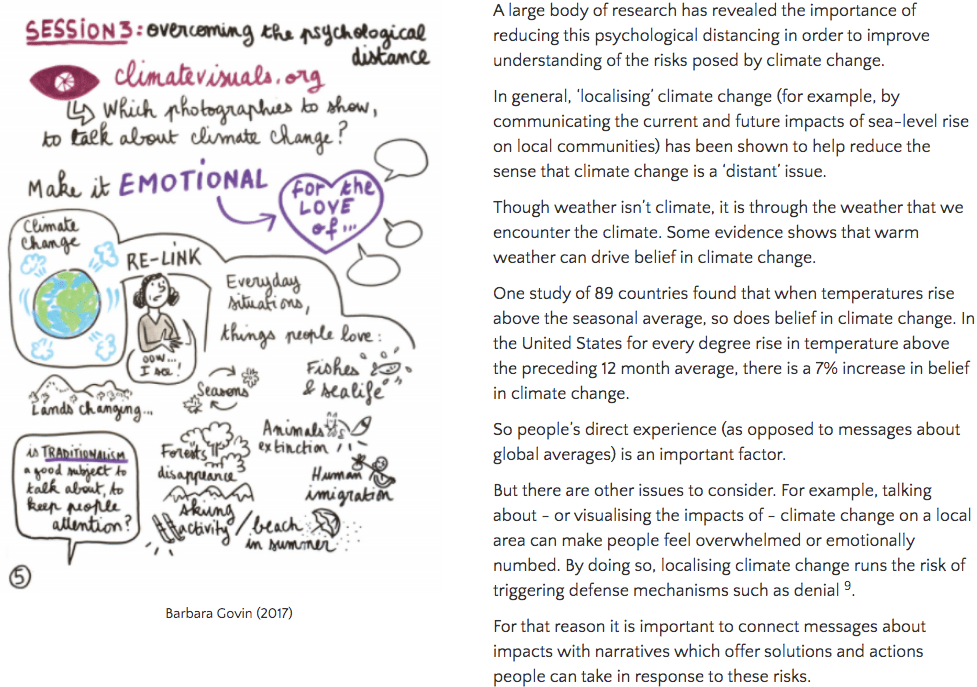 SESSION 3: overcoming the psychological
distance
climatevisuals.org
Which photographies to show,
to talk about climate change?
Make it EMOTIONAL
for the
LOVE
of...
Climate
Change
RE-LINK
OOW...
I see!
Everyday
situations,
things people love:
Fishes
& sealife
Seasons
Lands changing...
Animals
extinction
Forests
disappearance
Human
imigration
skiing
activity
/ beach
in summer
is TRADITIONALISM
a good subject to
talk about, to
keep people
attention?
5
Barbara Govin (2017)
A large body of research has revealed the importance of
reducing this psychological distancing in order to improve
understanding of the risks posed by climate change.
In general, ‘localising’ climate change (for example, by
communicating the current and future impacts of sea-level rise
on local communities) has been shown to help reduce the
sense that climate change is a ‘distant’ issue.
Though weather isn’t climate, it is through the weather that we
encounter the climate. Some evidence shows that warm
weather can drive belief in climate change.
One study of 89 countries found that when temperatures rise
above the seasonal average, so does belief in climate change. In
the United States for every degree rise in temperature above
the preceding 12 month average, there is a 7% increase in belief
in climate change.
So people’s direct experience (as opposed to messages about
global averages) is an important factor.
But there are other issues to consider. For example, talking
about – or visualising the impacts of – climate change on a local
area can make people feel overwhelmed or emotionally
numbed. By doing so, localising climate change runs the risk of
triggering defense mechanisms such as denial 9.
For that reason it is important to connect messages about
impacts with narratives which offer solutions and actions
people can take in response to these risks.